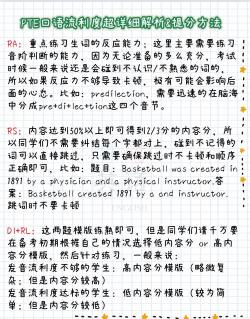 PTE口语流利度超详细解析&提分方法
RA: 重点练习生词的反应能力; 这里主要需要练习
音阶判断的能力, 因为无论准备的多么充分, 考试
时候一般来说还是会碰到不认识/不熟悉的词的,
所以如果反应力不够导致卡顿, 极有可能会影响后
面的心态。比如: predilection, 需要迅速的在脑海
中分成pre+di+lec+tion这四个音节。
RS: 内容达到50%以上即可得到2/3分的内容分, 所
以同学们不需要纠结每个字都对上, 碰到不记得的
词可以直接跳过, 只需要确保跳过时不卡顿和顺序
正确即可, 比如: 题目: Basketball was created in
1891 by a physician and a physical instructor.答
案: Basketball created 1891 by a and instructor.
跳词时不要卡顿
DI+RL: 这两题模版练熟即可, 但是同学们请千万要
在备考初期根据自己的情况选择低内容分 or 高内
容分模版, 然后针对练习, 一般来说:
发音流利度不够的学生: 高内容分模版 (略微复
杂; 但是内容分较高)
发音流利度达标的学生: 低内容分模版 (较为简
单; 但是内容分较低)